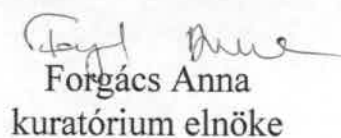 Forgács Anna
kuratórium elnöke